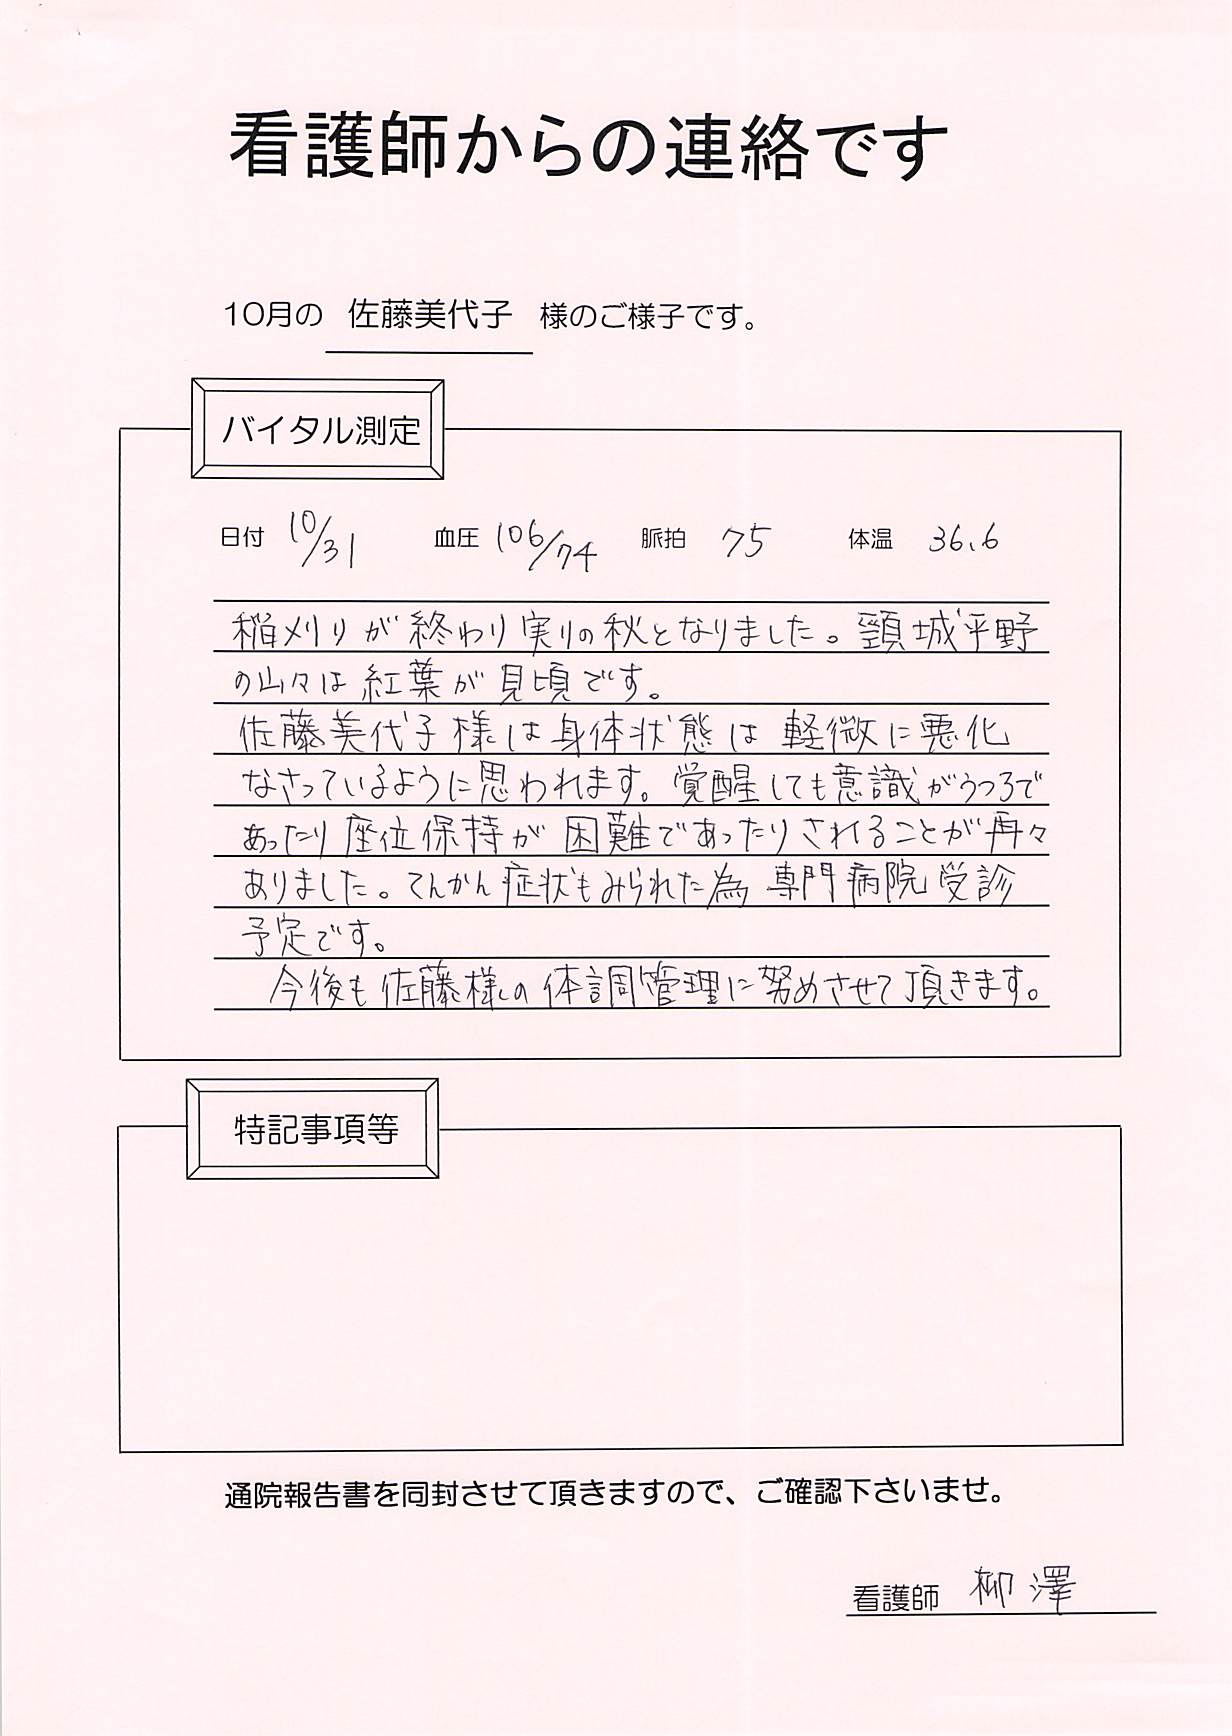 看護師からの連絡です
10月の 佐藤美代子 様のご様子です。
バイタル測定
日付 10/31 血圧 106/74 脈拍 75 体温 36.6
稲刈りが終わり実りの秋となりました。頸城平野
の山々は紅葉が見頃です。
佐藤美代子様は身体状態は軽微に悪化
なさっているように思われます。覚醒しても意識がうつろで
あったり座位保持が困難であったりされることが再々
ありました。てんかん症状もみられた為専門病院受診
予定です。
今後も佐藤様の体調管理に努めさせて頂きます。
特記事項等
通院報告書を同封させて頂きますので、ご確認下さいませ。
看護師 柳澤